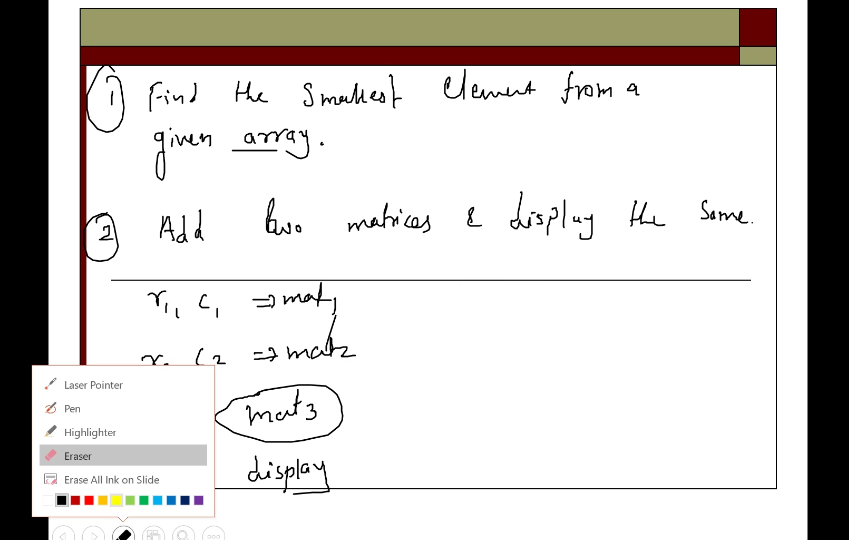 1 Find the smallest element from a
given array.
2 Add two matrices & display the same.
r1, c1 ⇒ mat1
c2 ⇒ mat2
mat3
display
Laser Pointer
Pen
Highlighter
Eraser
Erase All Ink on Slide